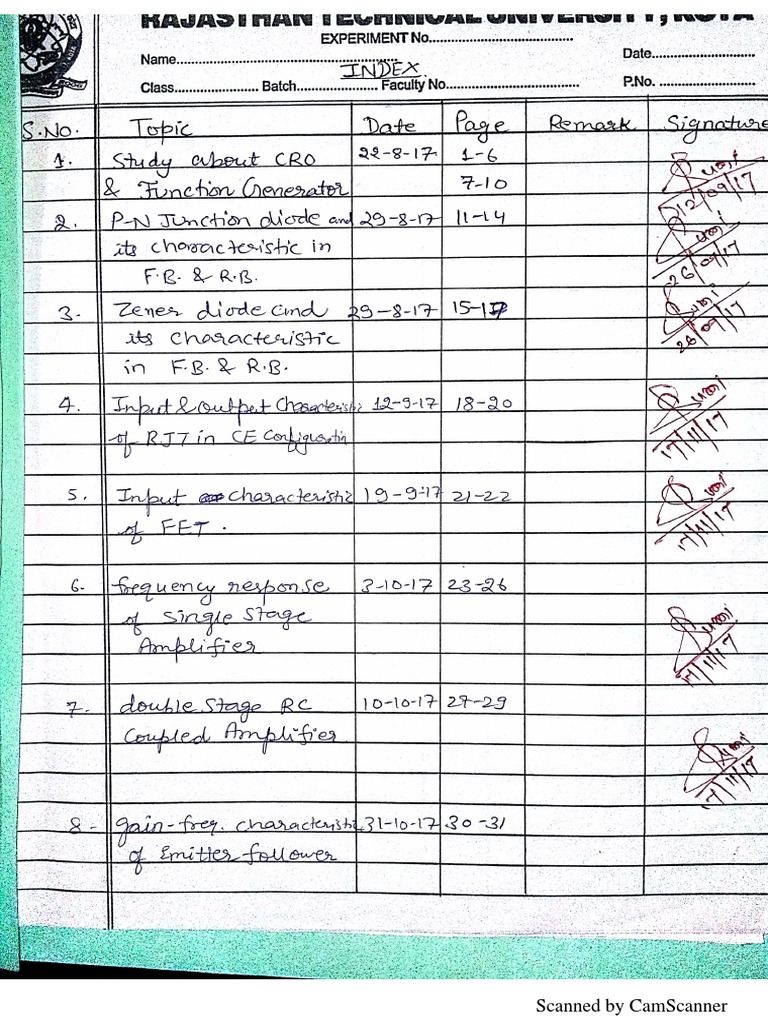 RAJASTHAN TECHNICAL UNIVERSITY, KOTA
EXPERIMENT No.
Name Date
INDEX
Class Batch Faculty No. P.No.
S.No. Topic Date Page Remark Signature
1. Study about CRO 22-8-17 1-6
& Function Generator 7-10
12/09/17
2. P-N Junction diode and 29-8-17 11-14
its characteristic in
F.B. & R.B.
26/09/17
3. Zener diode and 29-8-17 15-17
its characteristic
in F.B. & R.B.
26/09/17
4. Input & output characteristic 12-9-17 18-20
of BJT in CE Configuration
17/11/17
5. Input characteristic 19-9-17 21-22
of FET.
17/11/17
6- frequency response 3-10-17 23-26
of Single Stage
Amplifier
17/11/17
7. double Stage RC 10-10-17 27-29
Coupled Amplifier
17/11/17
8- gain-freq. characteristic 31-10-17 30-31
of Emitter follower
Scanned by CamScanner